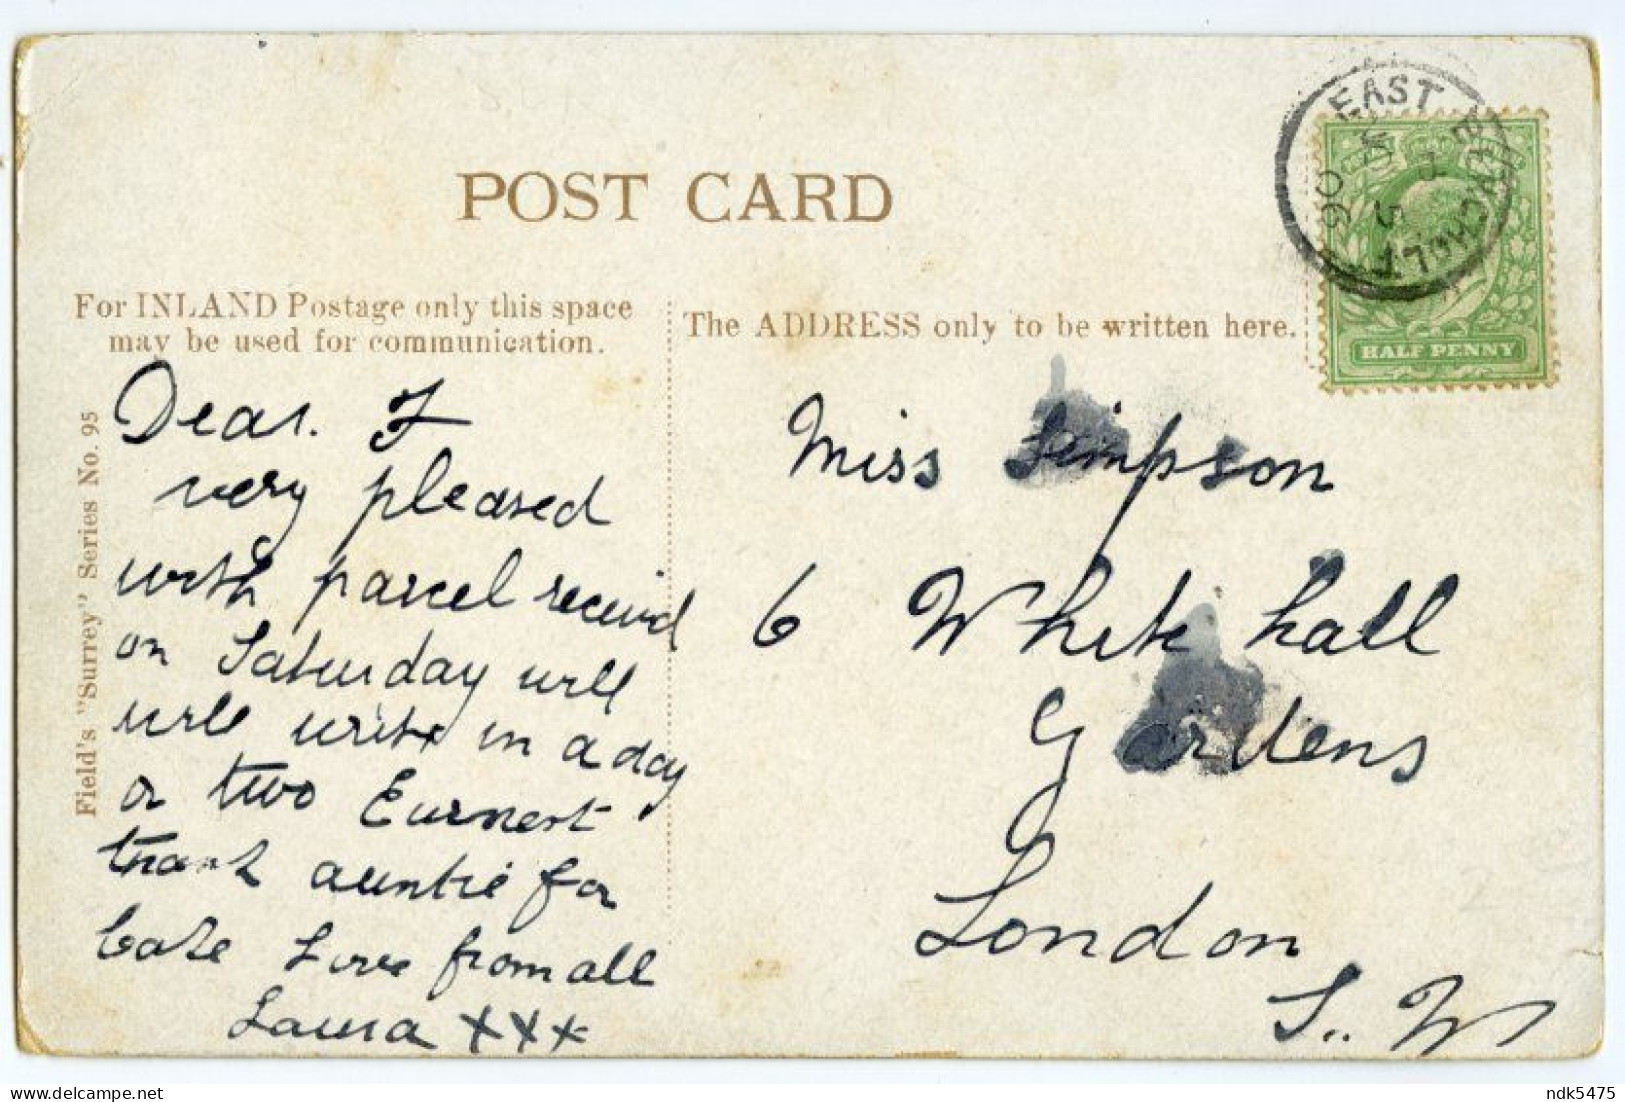 POST CARD
For INLAND Postage only this space
may be used for communication.
The ADDRESS only to be written here.
EAST BERGHOLT
5
06
HALF PENNY
Field's "Surrey" Series No. 95
Dear. F
very pleased
with parcel received
on Saturday will
will write in a day
or two Eurnest
thank auntie for
Cake Love from all
Laura XXX
Miss Simpson
6 White hall
Gardens
London
S.. W
ndk5475